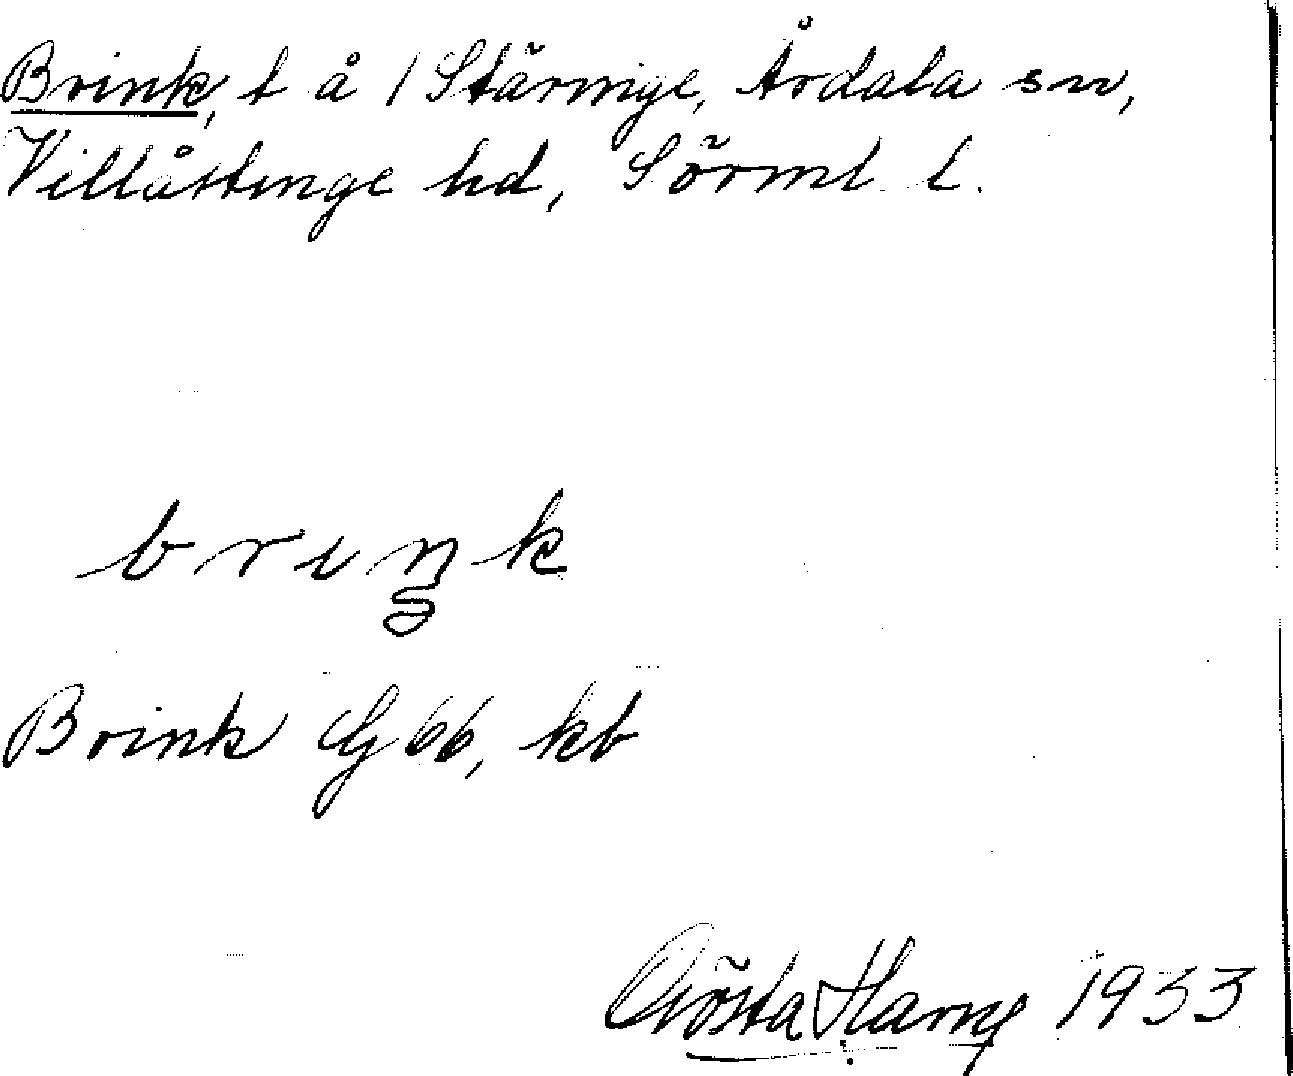 Brink, t å 1 Stäringe, Årdala sn,
Villåttinge hd, Sörml. l.
briŋk
Brink G 66, kb
Gösta Harng 1933